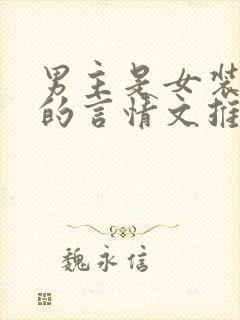 男主是女装
的言情文推
魏永信